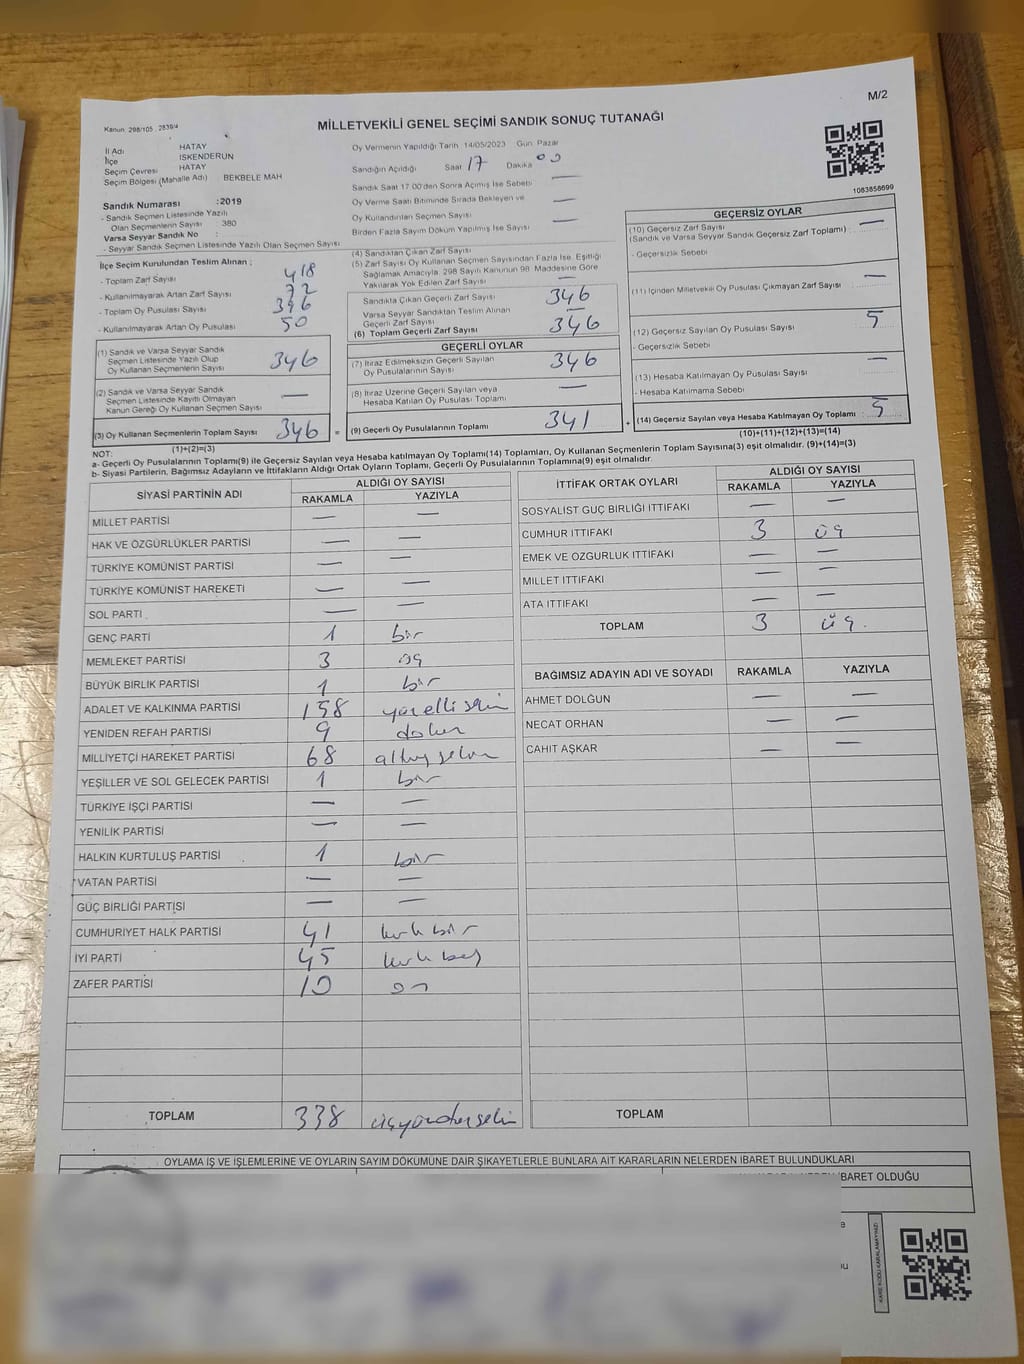 M/2
Kanun: 298/105 , 2839/4
MİLLETVEKİLİ GENEL SEÇİMİ SANDIK SONUÇ TUTANAĞI
İl Adı HATAY
İlçe İSKENDERUN
Seçim Çevresi HATAY
Seçim Bölgesi (Mahalle Adı) BEKBELE MAH
Sandık Numarası :2019
- Sandık Seçmen Listesinde Yazılı
Olan Seçmenlerin Sayısı : 380
Varsa Seyyar Sandık No :
- Seyyar Sandık Seçmen Listesinde Yazılı Olan Seçmen Sayısı:
Oy Vermenin Yapıldığı Tarih: 14/05/2023 Gün: Pazar
Sandığın Açıldığı Saat 17 Dakika 00
Sandık Saat 17.00'den Sonra Açımış İse Sebebi —
Oy Verme Saati Bitiminde Sırada Bekleyen ve —
Oy Kullandırılan Seçmen Sayısı —
Birden Fazla Sayım Döküm Yapılmış İse Sayısı
1083858699
İlçe Seçim Kurulundan Teslim Alınan ;
- Toplam Zarf Sayısı 418
- Kullanılmayarak Artan Zarf Sayısı 72
- Toplam Oy Pusulası Sayısı 396
- Kullanılmayarak Artan Oy Pusulası 50
(1) Sandık ve Varsa Seyyar Sandık
Seçmen Listesinde Yazılı Olup
Oy Kullanan Seçmenlerin Sayısı 346
(2) Sandık ve Varsa Seyyar Sandık
Seçmen Listesinde Kayıtlı Olmayan
Kanun Gereği Oy Kullanan Seçmen Sayısı —
(3) Oy Kullanan Seçmenlerin Toplam Sayısı 346
(1)+(2)=(3)
(4) Sandıktan Çıkan Zarf Sayısı
(5) Zarf Sayısı Oy Kullanan Seçmen Sayısından Fazla İse, Eşitliği
Sağlamak Amacıyla, 298 Sayılı Kanunun 98. Maddesine Göre
Yakılarak Yok Edilen Zarf Sayısı —
Sandıkta Çıkan Geçerli Zarf Sayısı 346
Varsa Seyyar Sandıktan Teslim Alınan
Geçerli Zarf Sayısı —
(6) Toplam Geçerli Zarf Sayısı 346
GEÇERLİ OYLAR
(7) İtiraz Edilmeksizin Geçerli Sayılan
Oy Pusulalarının Sayısı 346
(8) İtiraz Üzerine Geçerli Sayılan veya
Hesaba Katılan Oy Pusulası Toplamı —
= (9) Geçerli Oy Pusulalarının Toplamı 341 +
GEÇERSİZ OYLAR
(10) Geçersiz Zarf Sayısı —
(Sandık ve Varsa Seyyar Sandık Geçersiz Zarf Toplamı)
- Geçersizlik Sebebi
(11) İçinden Milletvekili Oy Pusulası Çıkmayan Zarf Sayısı —
(12) Geçersiz Sayılan Oy Pusulası Sayısı 5
- Geçersizlik Sebebi
(13) Hesaba Katılmayan Oy Pusulası Sayısı —
- Hesaba Katılmama Sebebi
(14) Geçersiz Sayılan veya Hesaba Katılmayan Oy Toplamı : 5
(10)+(11)+(12)+(13)=(14)
NOT:
a- Geçerli Oy Pusulalarının Toplamı(9) ile Geçersiz Sayılan veya Hesaba Katılmayan Oy Toplamı(14) Toplamları, Oy Kullanan Seçmenlerin Toplam Sayısına(3) eşit olmalıdır. (9)+(14)=(3)
b- Siyasi Partilerin, Bağımsız Adayların ve İttifakların Aldığı Ortak Oyların Toplamı, Geçerli Oy Pusulalarının Toplamına(9) eşit olmalıdır.
SİYASİ PARTİNİN ADI ALDIĞI OY SAYISI
RAKAMLA YAZIYLA
MİLLET PARTİSİ — —
HAK VE ÖZGÜRLÜKLER PARTİSİ — —
TÜRKİYE KOMÜNİST PARTİSİ — —
TÜRKİYE KOMÜNİST HAREKETİ — —
SOL PARTİ — —
GENÇ PARTİ 1 bir
MEMLEKET PARTİSİ 3 üç
BÜYÜK BİRLİK PARTİSİ 1 bir
ADALET VE KALKINMA PARTİSİ 158 yüzellisekiz
YENİDEN REFAH PARTİSİ 9 dokuz
MİLLİYETÇİ HAREKET PARTİSİ 68 altmışsekiz
YEŞİLLER VE SOL GELECEK PARTİSİ 1 bir
TÜRKİYE İŞÇİ PARTİSİ — —
YENİLİK PARTİSİ — —
HALKIN KURTULUŞ PARTİSİ 1 bir
VATAN PARTİSİ — —
GÜÇ BİRLİĞİ PARTİSİ — —
CUMHURİYET HALK PARTİSİ 41 kırk bir
İYİ PARTİ 45 kırk beş
ZAFER PARTİSİ 10 on
TOPLAM 338 üçyüzotuzsekiz
İTTİFAK ORTAK OYLARI ALDIĞI OY SAYISI
RAKAMLA YAZIYLA
SOSYALİST GÜÇ BİRLİĞİ İTTİFAKI — —
CUMHUR İTTİFAKI 3 üç
EMEK VE ÖZGÜRLÜK İTTİFAKI — —
MİLLET İTTİFAKI — —
ATA İTTİFAKI — —
TOPLAM 3 üç.
BAĞIMSIZ ADAYIN ADI VE SOYADI RAKAMLA YAZIYLA
AHMET DOLĞUN — —
NECAT ORHAN — —
CAHİT AŞKAR — —
TOPLAM
OYLAMA İŞ VE İŞLEMLERİNE VE OYLARIN SAYIM DÖKÜMÜNE DAİR ŞİKAYETLERLE BUNLARA AİT KARARLARIN NELERDEN İBARET BULUNDUKLARI
İBARET OLDUĞU
KARE KODU KARALAMAYINIZ!